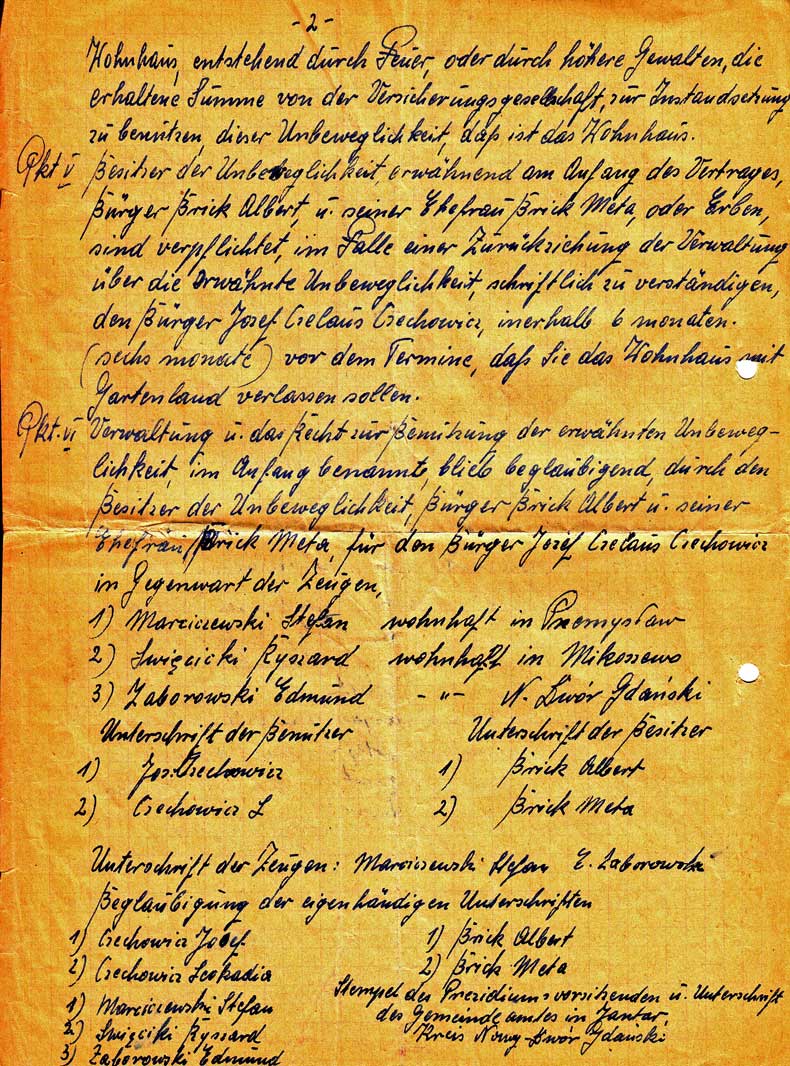 - 2 -
Wohnhaus, entstehend durch Feuer, oder durch höhere Gewalten, die
erhaltene Summe von der Versicherungsgesellschaft, zur Instandsetzung
zu benutzen, dieser Unbeweglichkeit, daß ist das Wohnhaus.
Pkt V Besitzer der Unbeweglichkeit, erwähnend am Anfang des Vertrages,
Bürger Brick Albert, u. seiner Ehefrau Brick Meta, oder Erben,
sind verpflichtet, im Falle einer Zurückziehung der Verwaltung
über die erwähnte Unbeweglichkeit, schriftlich zu verständigen,
den Bürger Josef Czelaus Czechowicz, inerhalb 6 monaten.
(sechs monate) vor dem Termine, daß Sie das Wohnhaus mit
Gartenland verlassen sollen.
Pkt. VI Verwaltung u. das Recht zur Benützung der erwähnten Unbeweg-
lichkeit, im Anfang benannte, blieb beglaubigend, durch den
Besitzer der Unbeweglichkeit, Bürger Brick Albert u. seiner
Ehefrau Brick Meta, für den Bürger Jozef Czelaus Czechowicz
in Gegenwart der Zeugen,
1) Marciczewski Stefan wohnhaft in Przemysław
2) Swięcicki Ryszard wohnhaft in Mikoszewo
3) Zaborowski Edmund - " - N. Dwór Gdański
Unterschrift der Benützer Unterschrift der Besitzer
1) Jos. Czechowicz 1) Brick Albert
2) Czechowicz L 2) Brick Meta
Unterschrift der Zeugen: Marciczewski Stefan E. Zaborowski
Beglaubigung der eigenhändigen Unterschriften
1) Czechowicz Josef 1) Brick Albert
2) Czechowicz Leokadia 2) Brick Meta
Stempel des Prezidiumsvorsitzenden u. Unterschrift
1) Marciczewski Stefan des Gemeindeamtes in Jantar,
2) Swięciki Ryszard Kreis Nowy-Dwór Gdański
3) Zaborowski Edmund